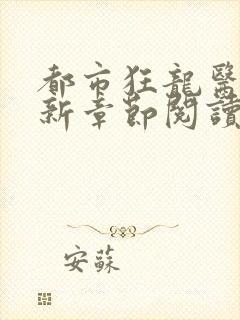 都市狂龍醫
新章節閱讀
安蘇